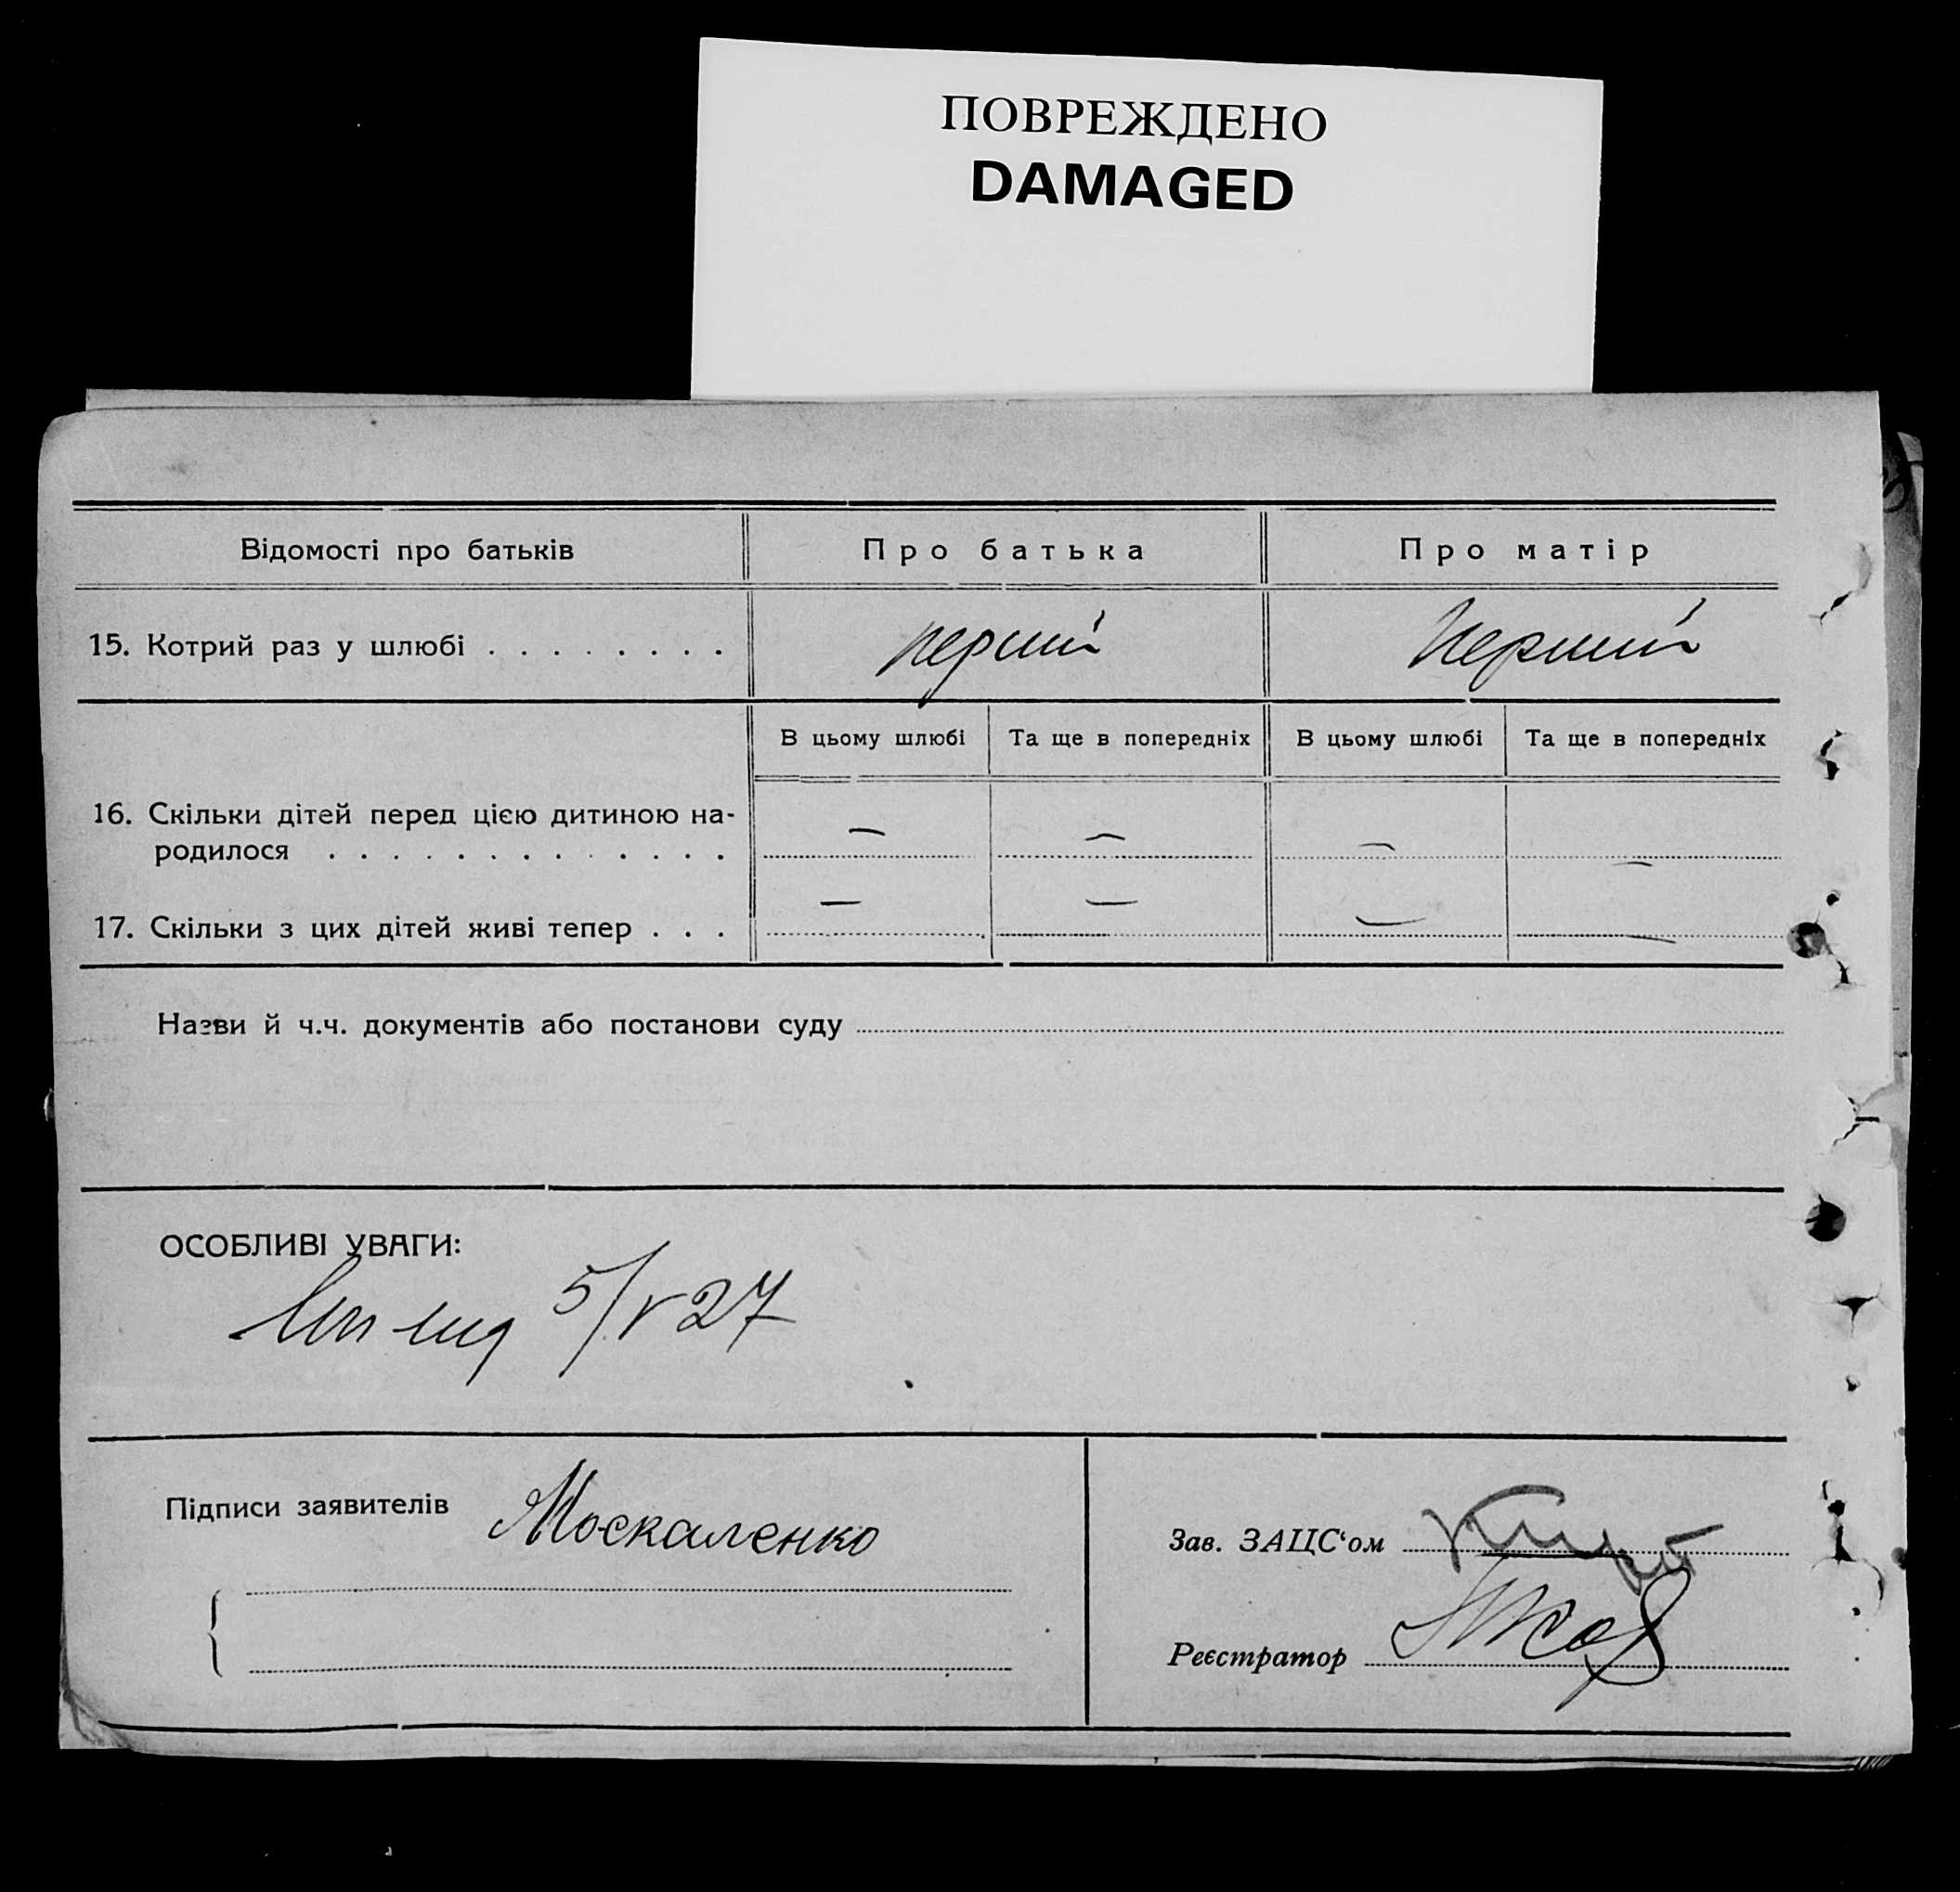 ПОВРЕЖДЕНО
DAMAGED
Відомості про батьків
Про батька
Про матір
15. Котрий раз у шлюбі . . . . . . . .
перший
Перший
В цьому шлюбі
Та ще в попередніх
В цьому шлюбі
Та ще в попередніх
16. Скільки дітей перед цією дитиною на-
родилося . . . . . . . . . . . . .
— — — —
17. Скільки з цих дітей живі тепер . . .
— — — —
Назви й ч.ч. документів або постанови суду
ОСОБЛИВІ УВАГИ:
5/V 27
Підписи заявителів Москаленко
Зав. ЗАЦС‘ом
Реєстратор